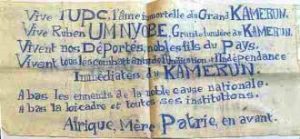 Vive l'UDC, l'âme immortelle du Grand KAMERUN.
Vive Ruben UM NYOBE, Grande lumière du KAMERUN.
Vivent nos Déportés, nobles fils du Pays.
Vivent tous les combattants de l'Unification et l'Indépendance
Immédiates du KAMERUN.
A bas les ennemis de la noble cause nationale.
A bas la loi cadre et toutes ses institutions.
Afrique, Mère Patrie, en avant.